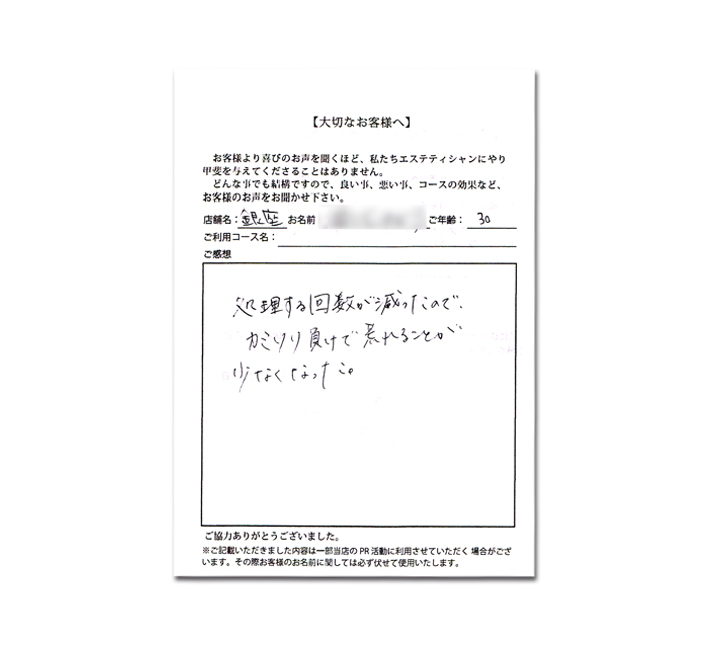 【大切なお客様へ】
お客様より喜びのお声を聞くほど、私たちエステティシャンにやり
甲斐を与えてくださることはありません。
どんな事でも結構ですので、良い事、悪い事、コースの効果など、
お客様のお声をお聞かせ下さい。
店舗名：銀座 お名前 ご年齢： 30
ご利用コース名：
ご感想
処理する回数が減ったので、
カミソリ負けで荒れることが
少なくなった。
ご協力ありがとうございました。
※ご記載いただきました内容は一部当店の PR 活動に利用させていただく場合がござ
います。その際お客様のお名前に関しては必ず伏せて使用いたします。